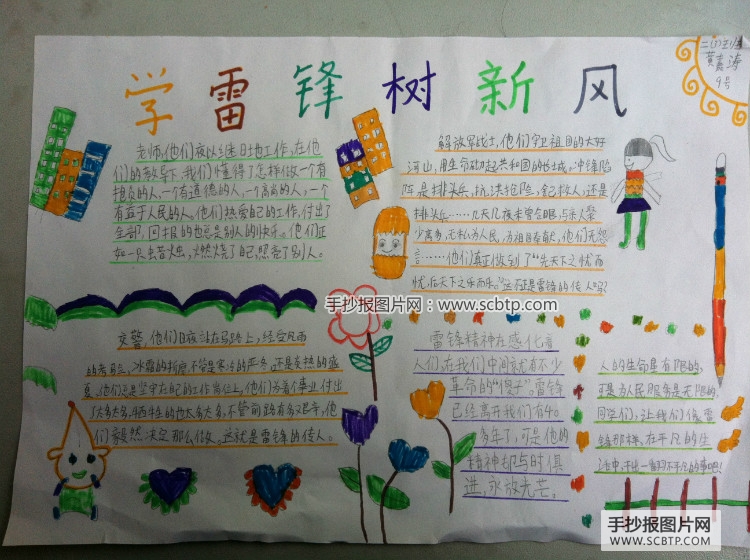 学雷锋树新风
黄
9号
老师,他们夜以继日地工作,在他
们的教导下,我们懂得了怎样做一个有
抱负的人,一个有道德的人,一个高尚的人,一个
有益于人民的人。他们热爱自己的工作,付出了
全部,回报的也总是别人的快乐。他们正
如一只虫昔火虫,燃烧了自己,照亮了别人。
解放军战士,他们守卫祖国的大好
河山,用生命砌起共和国的长城。冲锋陷
阵是排头兵,抗洪抢险,舍己救人,还是
排头兵……几天几夜未曾合眼,与亲人聚
少离多,无私为人民,为祖国奉献,他们无怨
言……他们真正做到了“先天下之忧而
忧,后天下之乐而乐。”这不正是雷锋的传人吗?
手抄报图片网:www.scbtp.com
交警,他们日夜站在马路上,经受风雨
的考验,冰霜的折磨,不管是寒冷的严冬,还是炎热的盛
夏,他们总是坚守在自己的工作岗位上,他们为着事业,付出
了太多太多,牺牲的也太多太多,不管前路有多艰辛,他
们毅然决定那么做。这就是雷锋的传人。
雷锋精神在感化着
人们,在我们中间就有不少
革命的“傻子”。雷锋
已经离开我们有年。
多年了,可是他的
精神却与时俱
进,永放光芒。
人的生命是有限的,
可是为人民服务是无限的,
同学们,让我们像雷
锋那样,在平凡的生
活中,
手抄报图片网
WWW.SCBTP.COM